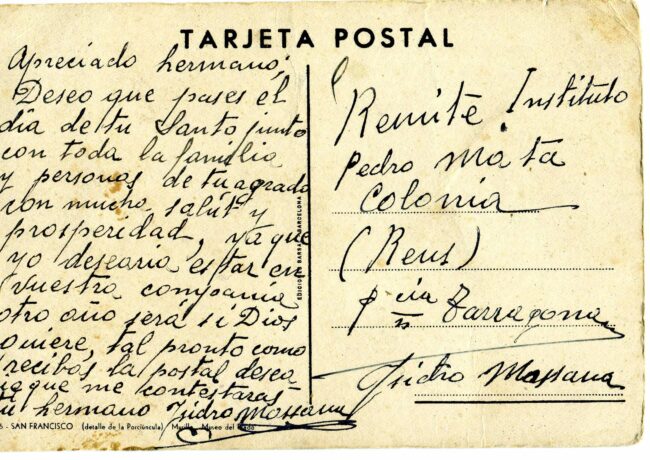 TARJETA POSTAL
Apreciado hermano;
Deseo que pases el
dia de tu Santo junto
con toda la familia
y personas de tu agrado
con mucho salut y
prosperidad, ya que
yo desearia estar en
vuestra compania
otro año será si Dios
quiere, tal pronto como
recibas la postal desea
que me contestaras
tu hermano Isidro Massana
- SAN FRANCISCO (detalle de la Porciúncula) Murillo - Museo del Prado
EDICIONES BARSAL-BARCELONA
Remite Instituto
Pedro Mata
Colonia
(Reus)
Pcia Tarragona
Isidro Massana